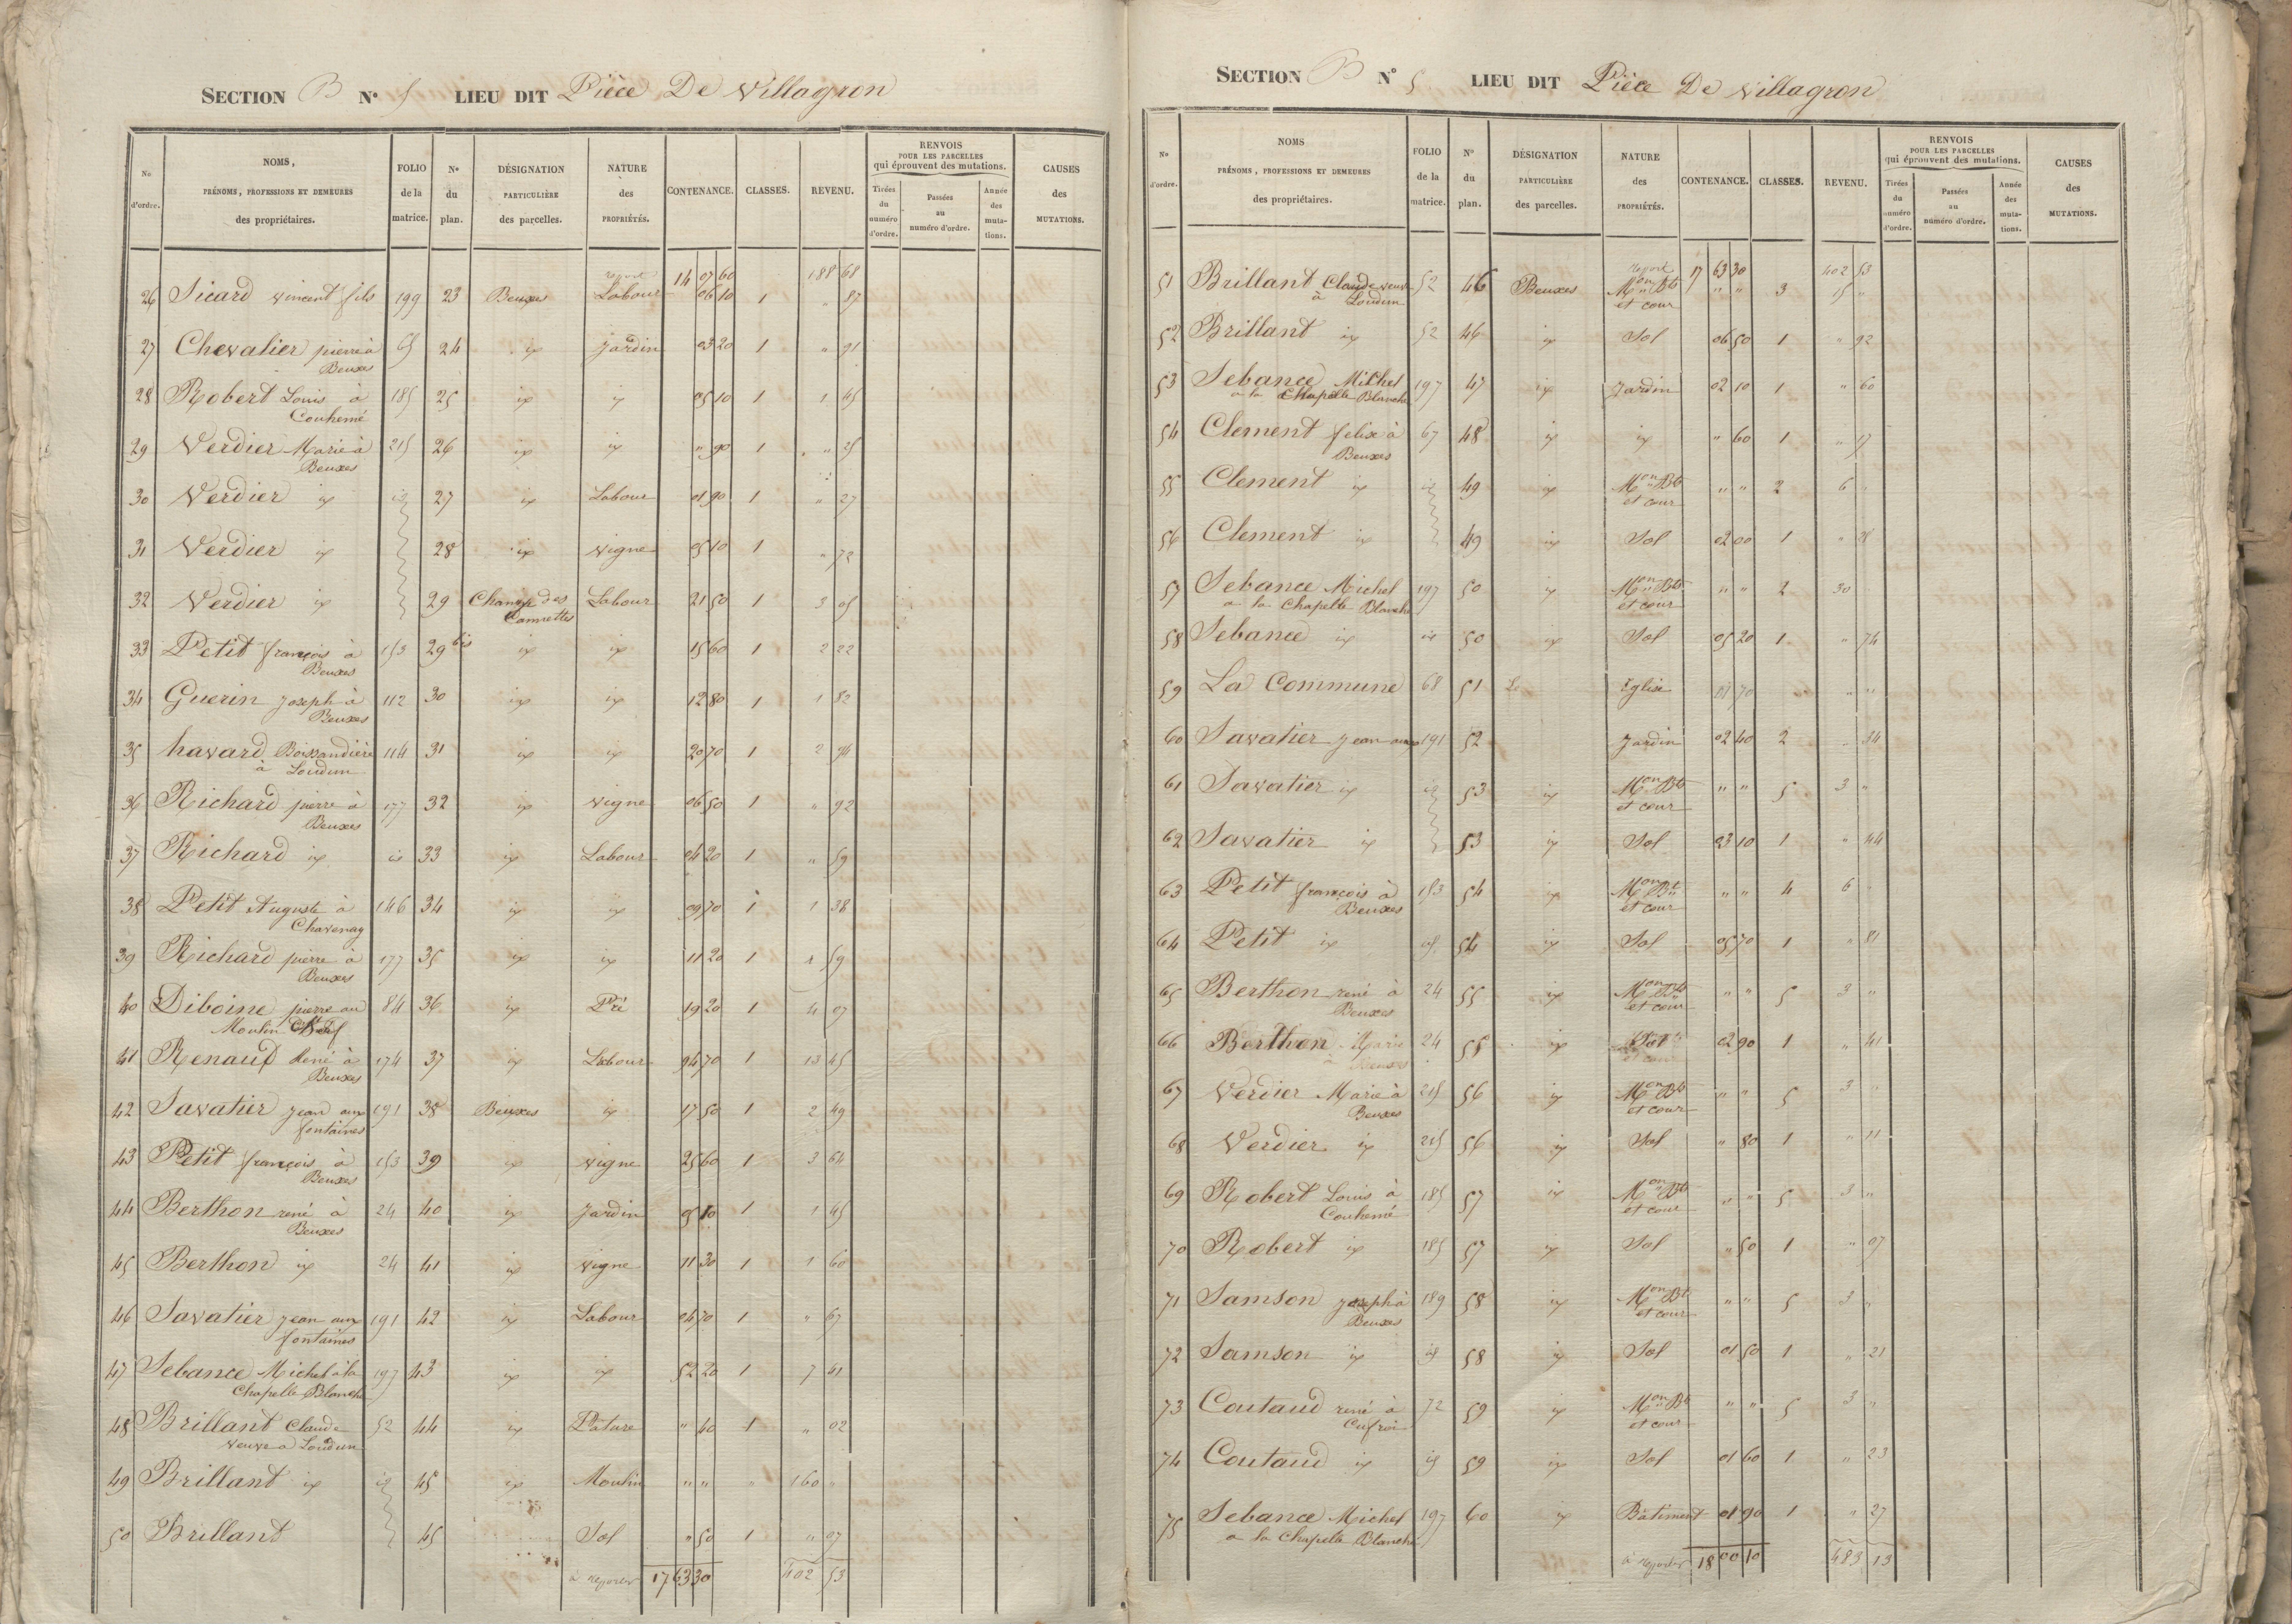 SECTION B N° 5 LIEU DIT Pièce De Villagron
N° d'ordre. NOMS, PRÉNOMS, PROFESSIONS ET DEMEURES des propriétaires. FOLIO de la matrice. N° du plan. DÉSIGNATION PARTICULIÈRE des parcelles. NATURE des PROPRIÉTÉS. CONTENANCE. CLASSES. REVENU. RENVOIS POUR LES PARCELLES qui éprouvent des mutations. Tirées du numéro d'ordre. Passées au numéro d'ordre. Année des mutations. CAUSES des MUTATIONS.
report 14 07 60 188 68
26 Sicard vincent fils 199 23 Beuxes Labour 06 10 1 " 87
27 Chevalier pierre à 65 24 ix jardin 03 20 1 " 91
Beuxes
28 Robert Louis à 185 25 ix ix 05 10 1 1 45
Couhemé
29 Verdier Marie à 215 26 ix ix " 90 1 " 25
Beuxes
30 Verdier ix 27 ix Labour 01 90 1 " 27
31 Verdier ix 28 ix vigne 05 10 1 " 72
32 Verdier ix 29 Champ des Labour 21 50 1 3 05
Cannettes
33 Petit françois à 153 29 bis ix ix 15 60 1 2 22
Beuxes
34 Guerin joseph à 112 30 ix ix 12 80 1 1 82
Beuxes
35 havard Boissandière 114 31 ix ix 20 70 1 2 94
à Loudun
36 Richard pierre à 177 32 ix vigne 06 50 1 " 92
Beuxes
37 Richard ix is 33 ix Labour 04 20 1 " 59
38 Petit Auguste à 146 34 ix ix 09 70 1 1 38
Chavenay
39 Richard pierre à 177 35 ix ix 11 20 1 1 59
Beuxes
40 Diboine pierre au 84 36 ix Pré 19 20 1 4 07
Moulin Neuf
41 Renaud René à 174 37 ix Labour 94 70 1 13 45
Beuxes
42 Savatier jean aux 191 38 Beuxes ix 17 50 1 2 49
fontaines
43 Petit françois à 153 39 ix vigne 25 60 1 3 64
Beuxes
44 Berthon rené à 24 40 ix jardin 05 10 1 1 45
Beuxes
45 Berthon ix 24 41 ix vigne 11 30 1 1 60
46 Savatier jean aux 191 42 ix Labour 04 70 1 " 67
fontaines
47 Sebance Michel à la 197 43 ix ix 52 20 1 7 41
Chapelle Blanche
48 Brillant Claude 52 44 ix Pature " 40 1 " 02
veuve à Loudun
49 Brillant ix 45 ix Moulin " " " 160 "
50 Brillant 45 Sol " 50 1 " 07
à reporter 17 63 30 402 53
SECTION B N° 5 LIEU DIT Pièce De Villagron
N° d'ordre. NOMS PRÉNOMS, PROFESSIONS ET DEMEURES des propriétaires. FOLIO de la matrice. N° du plan. DÉSIGNATION PARTICULIÈRE des parcelles. NATURE des PROPRIÉTÉS. CONTENANCE. CLASSES. REVENU. RENVOIS POUR LES PARCELLES qui éprouvent des mutations. Tirées du numéro d'ordre. Passées au numéro d'ordre. Année des mutations. CAUSES des MUTATIONS.
report 17 63 30 402 53
51 Brillant Claude veuve 52 46 Beuxes Mon Bts " " 3 15 "
à Loudun et cour
52 Brillant ix 52 46 ix Sol 06 50 1 " 92
53 Sebance Michel 197 47 ix jardin 02 10 1 " 60
a la Chapelle Blanche
54 Clement felix à 67 48 ix ix " 60 1 " 17
Beuxes
55 Clement ix 49 ix Mon Bts " " 2 6 "
et cour
56 Clement ix 49 ix Sol 02 00 1 " 28
57 Sebance Michel 197 50 ix Mon Bts " " 2 30
a la Chapelle Blanche et cour
58 Sebance ix is 50 ix Sol 05 20 1 " 74
59 La Commune 68 51 Église 70 " "
60 Savatier jean aux 191 52 jardin 02 40 2 " 34
61 Savatier ix 53 ix Mon Bts " " 5 3 "
et cour
62 Savatier ix 53 ix Sol 03 10 1 " 44
63 Petit françois à 153 54 ix Mon Bts " " 4 6 "
Beuxes et cour
64 Petit ix 54 ix Sol 05 70 1 " 81
65 Berthon rené à 24 55 ix Mon Bts " " 5 3 "
Beuxes et cour
66 Berthon Marie 24 55 ix Sol 02 90 1 " 41
à Beuxes
67 Verdier Marie à 215 56 ix Mon Bts " " 5 3 "
Beuxes et cour
68 Verdier ix 215 56 ix Sol " 80 1 " 11
69 Robert Louis à 185 57 ix Mon Bts " " 5 3 "
Couhemé et cour
70 Robert ix 185 57 ix Sol " 50 1 " 07
71 Samson joseph à 189 58 ix Mon Bts " " 5 3 "
Beuxes et cour
72 Samson ix 58 ix Sol 01 50 1 " 21
73 Coutaud rené à 72 59 ix Mon Bts " " 5 3 "
Cufroi et cour
74 Coutaud ix 59 ix Sol 01 60 1 " 23
75 Sebance Michel 197 60 ix Bâtiment 01 90 1 " 27
a la Chapelle Blanche
à reporter 18 00 10 483 13